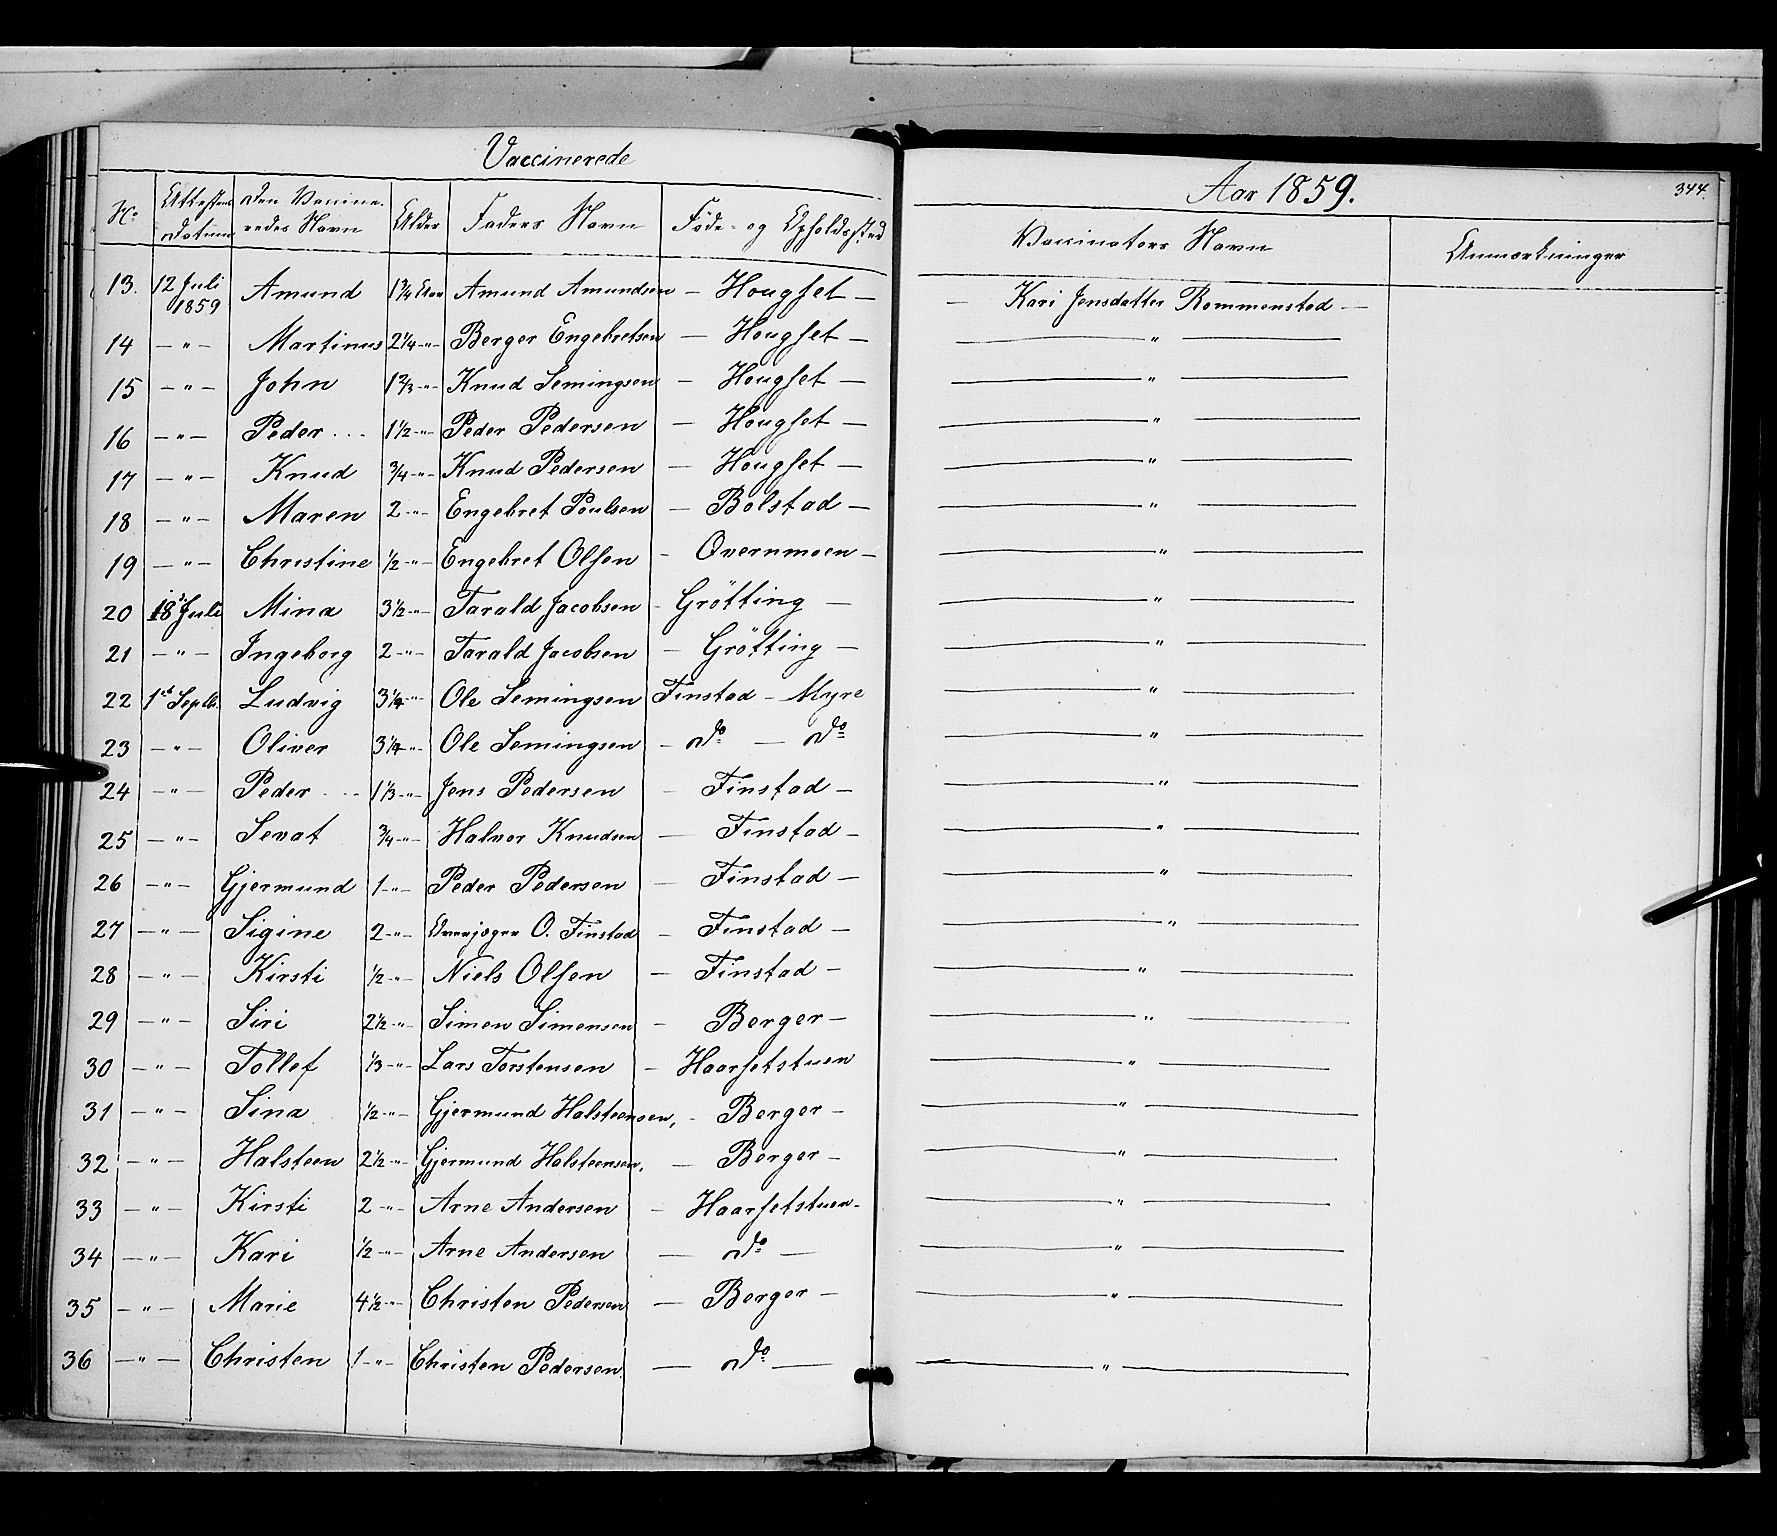 Vaccinerede
Aar 1859.
344.
No Attestens Datum Den Vaccineredes Navn Alder Faders Navn Føde- og Opholdssted Vaccinators Navn Anmærkninger
13. 12 Juli 1859 Amund 1 3/4 Aar Amund Amundsen — Hougset — — Kari Jensdatter Rommenstad —
14 —"— Martinus 2 1/4 —"— Berger Engebretsen — Hougset — — " —
15 —"— John 1 2/3 —"— Knud Semingsen — Hougset — — " —
16 —"— Peder 1 1/2 —"— Peder Pedersen — Hougset — — " —
17 —"— Knud 3/4 —"— Knud Pedersen — Hougset — — " —
18 —"— Maren 2 —"— Engebret Poulsen — Bolstad — — " —
19 —"— Christine 1/2 —"— Engebret Olsen — Overnmoen — — " —
20 18 Juli Mina 3 1/2 —"— Tarald Jacobsen — Grötting — — " —
21 —"— Ingeborg 2 —"— Tarald Jacobsen — Grötting — — " —
22 1st Septb. Ludvig 3 1/4 —"— Ole Semingsen Finstad — Myre — " —
23 —"— Oliver 3 1/4 —"— Ole Semingsen — do — do — " —
24 —"— Peder 1 1/3 —"— Jens Pedersen — Finstad — — " —
25 —"— Sevat 3/4 —"— Halvor Knudsen — Finstad — — " —
26 —"— Gjermund 1 —"— Peder Pedersen — Finstad — — " —
27 —"— Sigine 2 —"— O. Finstad — Finstad — — " —
28 —"— Kirsti 1/2 —"— Niels Olsen — Finstad — — " —
29 —"— Siri 2 1/2 —"— Simen Simensen — Berger — — " —
30 —"— Tollef 1/3 —"— Lars Torstensen — Haarsetstuen — " —
31 —"— Sina 1/2 —"— Gjermund Halsteensen, — Berger — — " —
32 —"— Halsteen 2 1/2 —"— Gjermund Halsteensen, — Berger — — " —
33 —"— Kirsti 2 —"— Arne Andersen — Haarsetstuen — — " —
34 —"— Kari 1/2 —"— Arne Andersen — do — — " —
35 —"— Marie 4 1/2 —"— Christen Pedersen — Berger — — " —
36 —"— Christen 1 —"— Christen Pedersen. — do — — " —